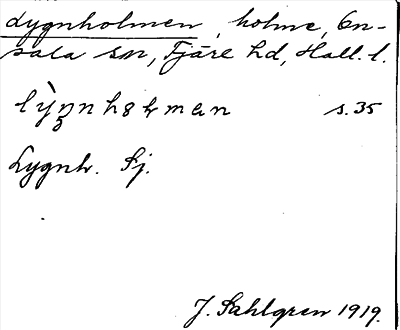 Lygnholmen, holme, On-
sala sn, Fjäre hd, Hall. l.
s. 35
Lygnh. Sj.
J. Sahlgren 1919.